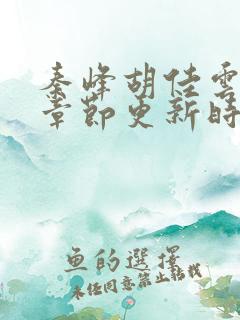 秦峰胡佳雲
章節更新時
魚的選擇
未經同意禁止轉載